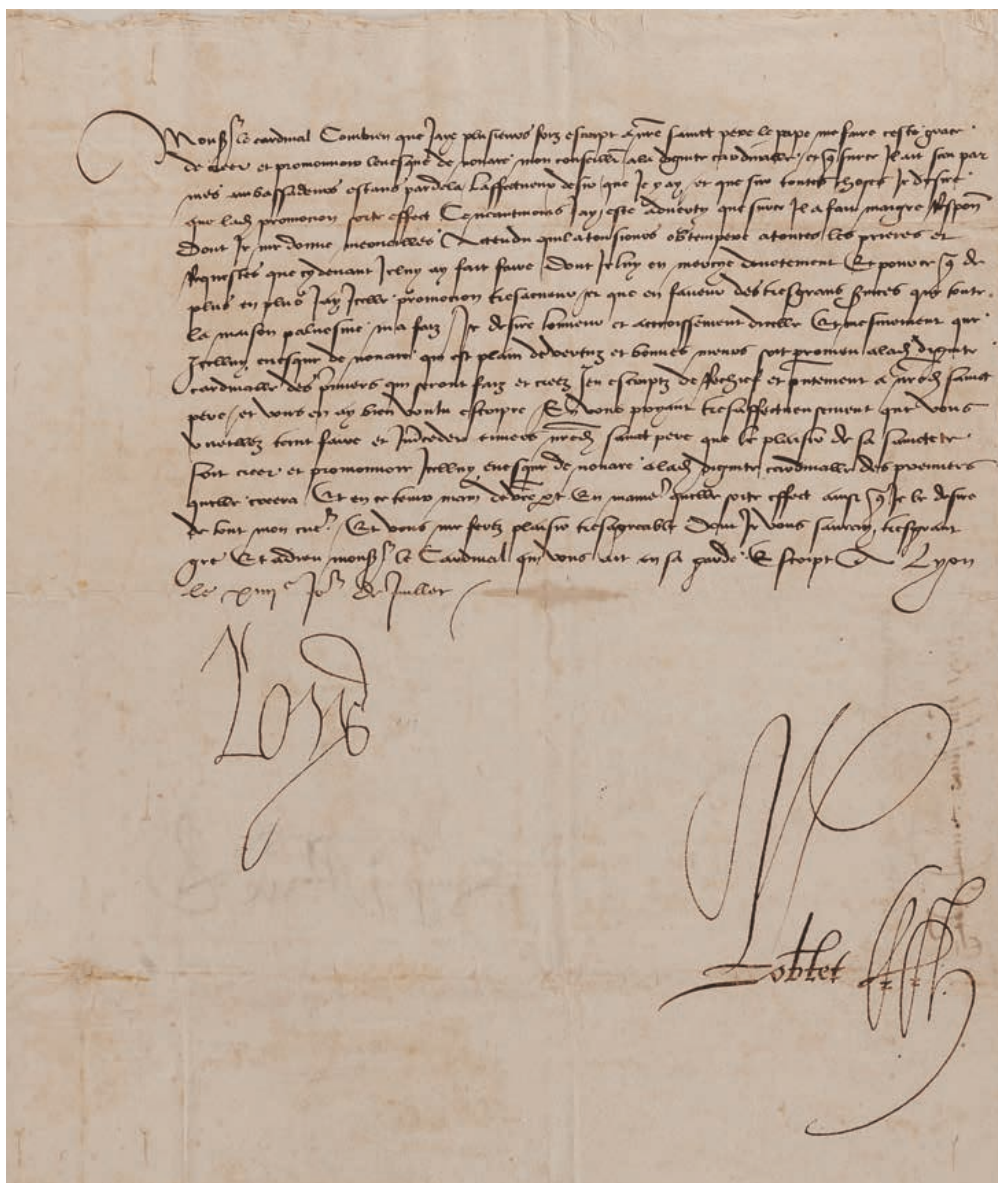 Monsr le cardinal Combien que Jaye plusieurs foiz escript a nre sainct pere le pape me faire ceste grace
de creer et promouvoir levesque de novare mon conseiller a la dignite cardinalle et que surce Il ait sceu par
mes ambassadeurs estans pardela Laffectueux desir que Je y ay et que sur toutes choses Je desire
que lad promocion sorte effect Ce neantmoins Jay este adverty que surce Il a fait maigre Response
Dont Je me donne merveilles Actendu quil a tousiours obtempere a toutes les prieres et
Requestes que cy devant Je luy ay fait faire Dont Je luy en mercye devotement Et pour ce que de
plus en plus Jay Icelle promocion tresacueur et que en faveur des tresgrans services que toute
la maison palvesine ma faiz Je desire lonneur et accroissement dicelle Et mesmement que
Icelluy evesque de novare qui est plain de vertuz et bonnes meurs soit promeu a lad dignite
cardinalle des premiers qui seront faiz et creez Jen escriptz de Rechief et presentement a nred sainct
pere et vous en ay bien voulu escripre En vous priant tresaffectueusement que vous
vueillez tant faire et Interceder envers nred sainct pere que le plaisir de sa sainctete
soit creer et promouvoir Icelluy evesque de novare a lad dignite cardinalle des premiers
quelle creera Et en ce tenir main de vre part En maniere quelle sorte effect ainsi que Je le desire
de tout mon cueur Et vous me ferez plaisir tresagreable Dont Je vous scauray tresgrant
gre Et adieu monsr le Cardinal qui vous ait en sa garde Escript A Lyon
le xiiiie Jor de Juillet
Loys
Robtet